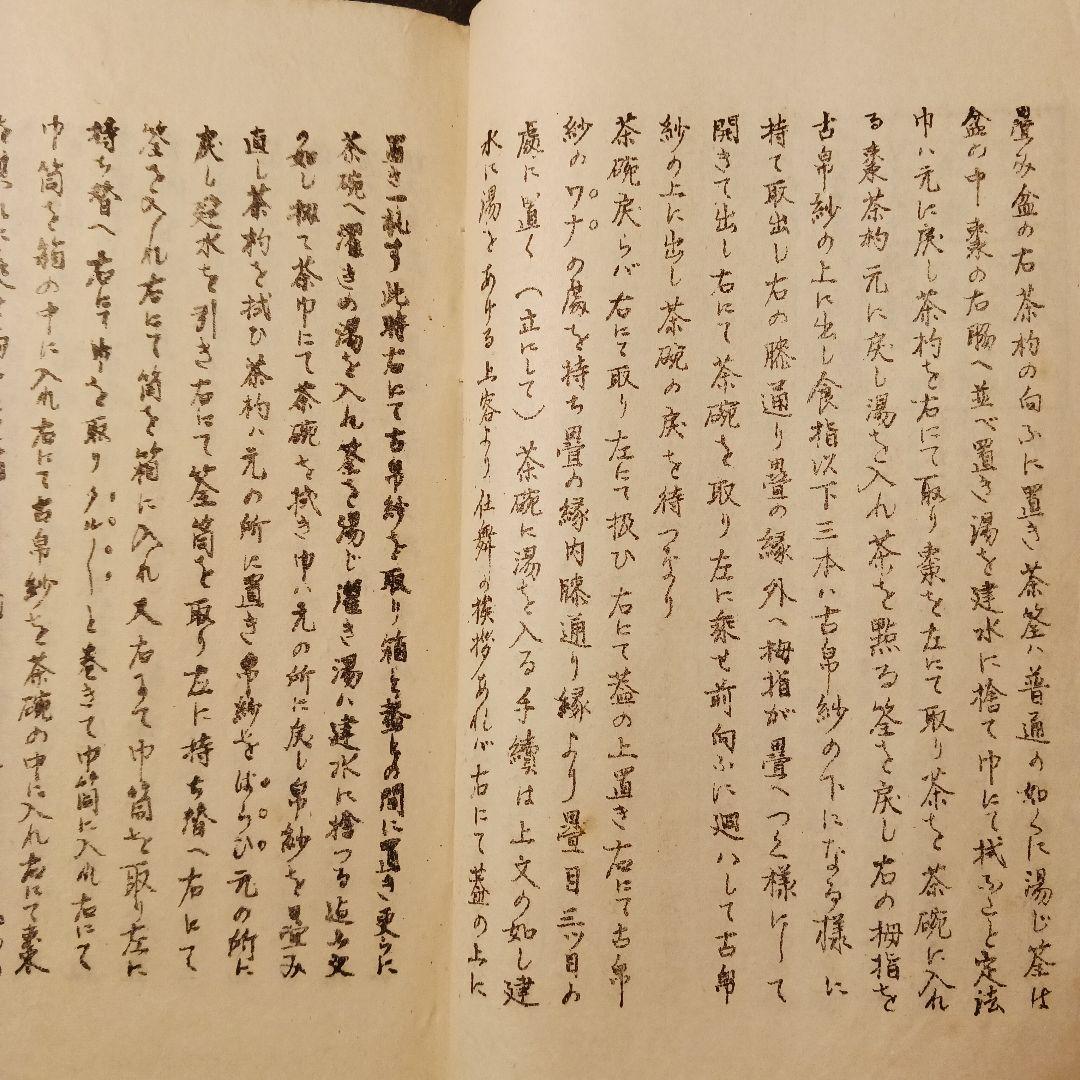 畳み盆の右茶杓の向ふに置き茶筌ハ普通の如くに湯じ茶は
盆の中棗の右脇へ並べ置き湯を建水に捨て巾にて拭ふこと定法
巾ハ元に戻し茶杓を右にて取り棗を左にて取り茶を茶碗に入れ
る棗茶杓元に戻し湯を入れ茶を點る筌を戻し右の拇指を
古帛紗の上に出し食指以下三本ハ古帛紗の下になる様に
持て取出し右の膝通り畳の縁外へ拇指が畳へつく様にして
開きて出し右にて茶碗を取り左に乗せ前向ふに廻ハして古帛
紗の上に出し茶碗の戻を待つなり
茶碗戻らバ右にて取り左にて扱ひ右にて蓋の上置き右にて古帛
紗のワナの處を持ち畳の縁内膝通り縁より畳目三ツ目の
處に置く(正にして)茶碗に湯を入る手續は上文の如し建
水に湯をあける上客より仕舞の挨拶あれバ右にて蓋の上に
置き一礼す此時右にて古帛紗を取り箱と蓋との間に置き更らに
茶碗へ濯きの湯を入れ筌を湯じ濯き湯ハ建水に捨つる迄上文
の如し扨て茶巾にて茶碗を拭き巾ハ元の所に戻し帛紗を畳み
直し茶杓を拭ひ茶杓ハ元の所に置き帛紗をばらひ元の所に
戻し建水を引き右にて筌筒を取り左に持ち替へ右にて
筌を入れ右にて筒を箱に入れ又右にて巾筒を取り左に
持ち替へ右にて巾を取りクル〱と巻きて巾筒に入れ右にて
巾筒を箱の中に入れ右にて古帛紗を茶碗の中に入れ右にて棗